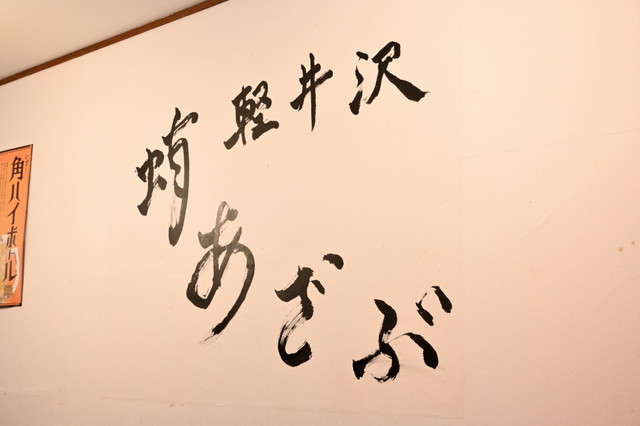 軽井沢
蛸あざぶ
角ハイボール